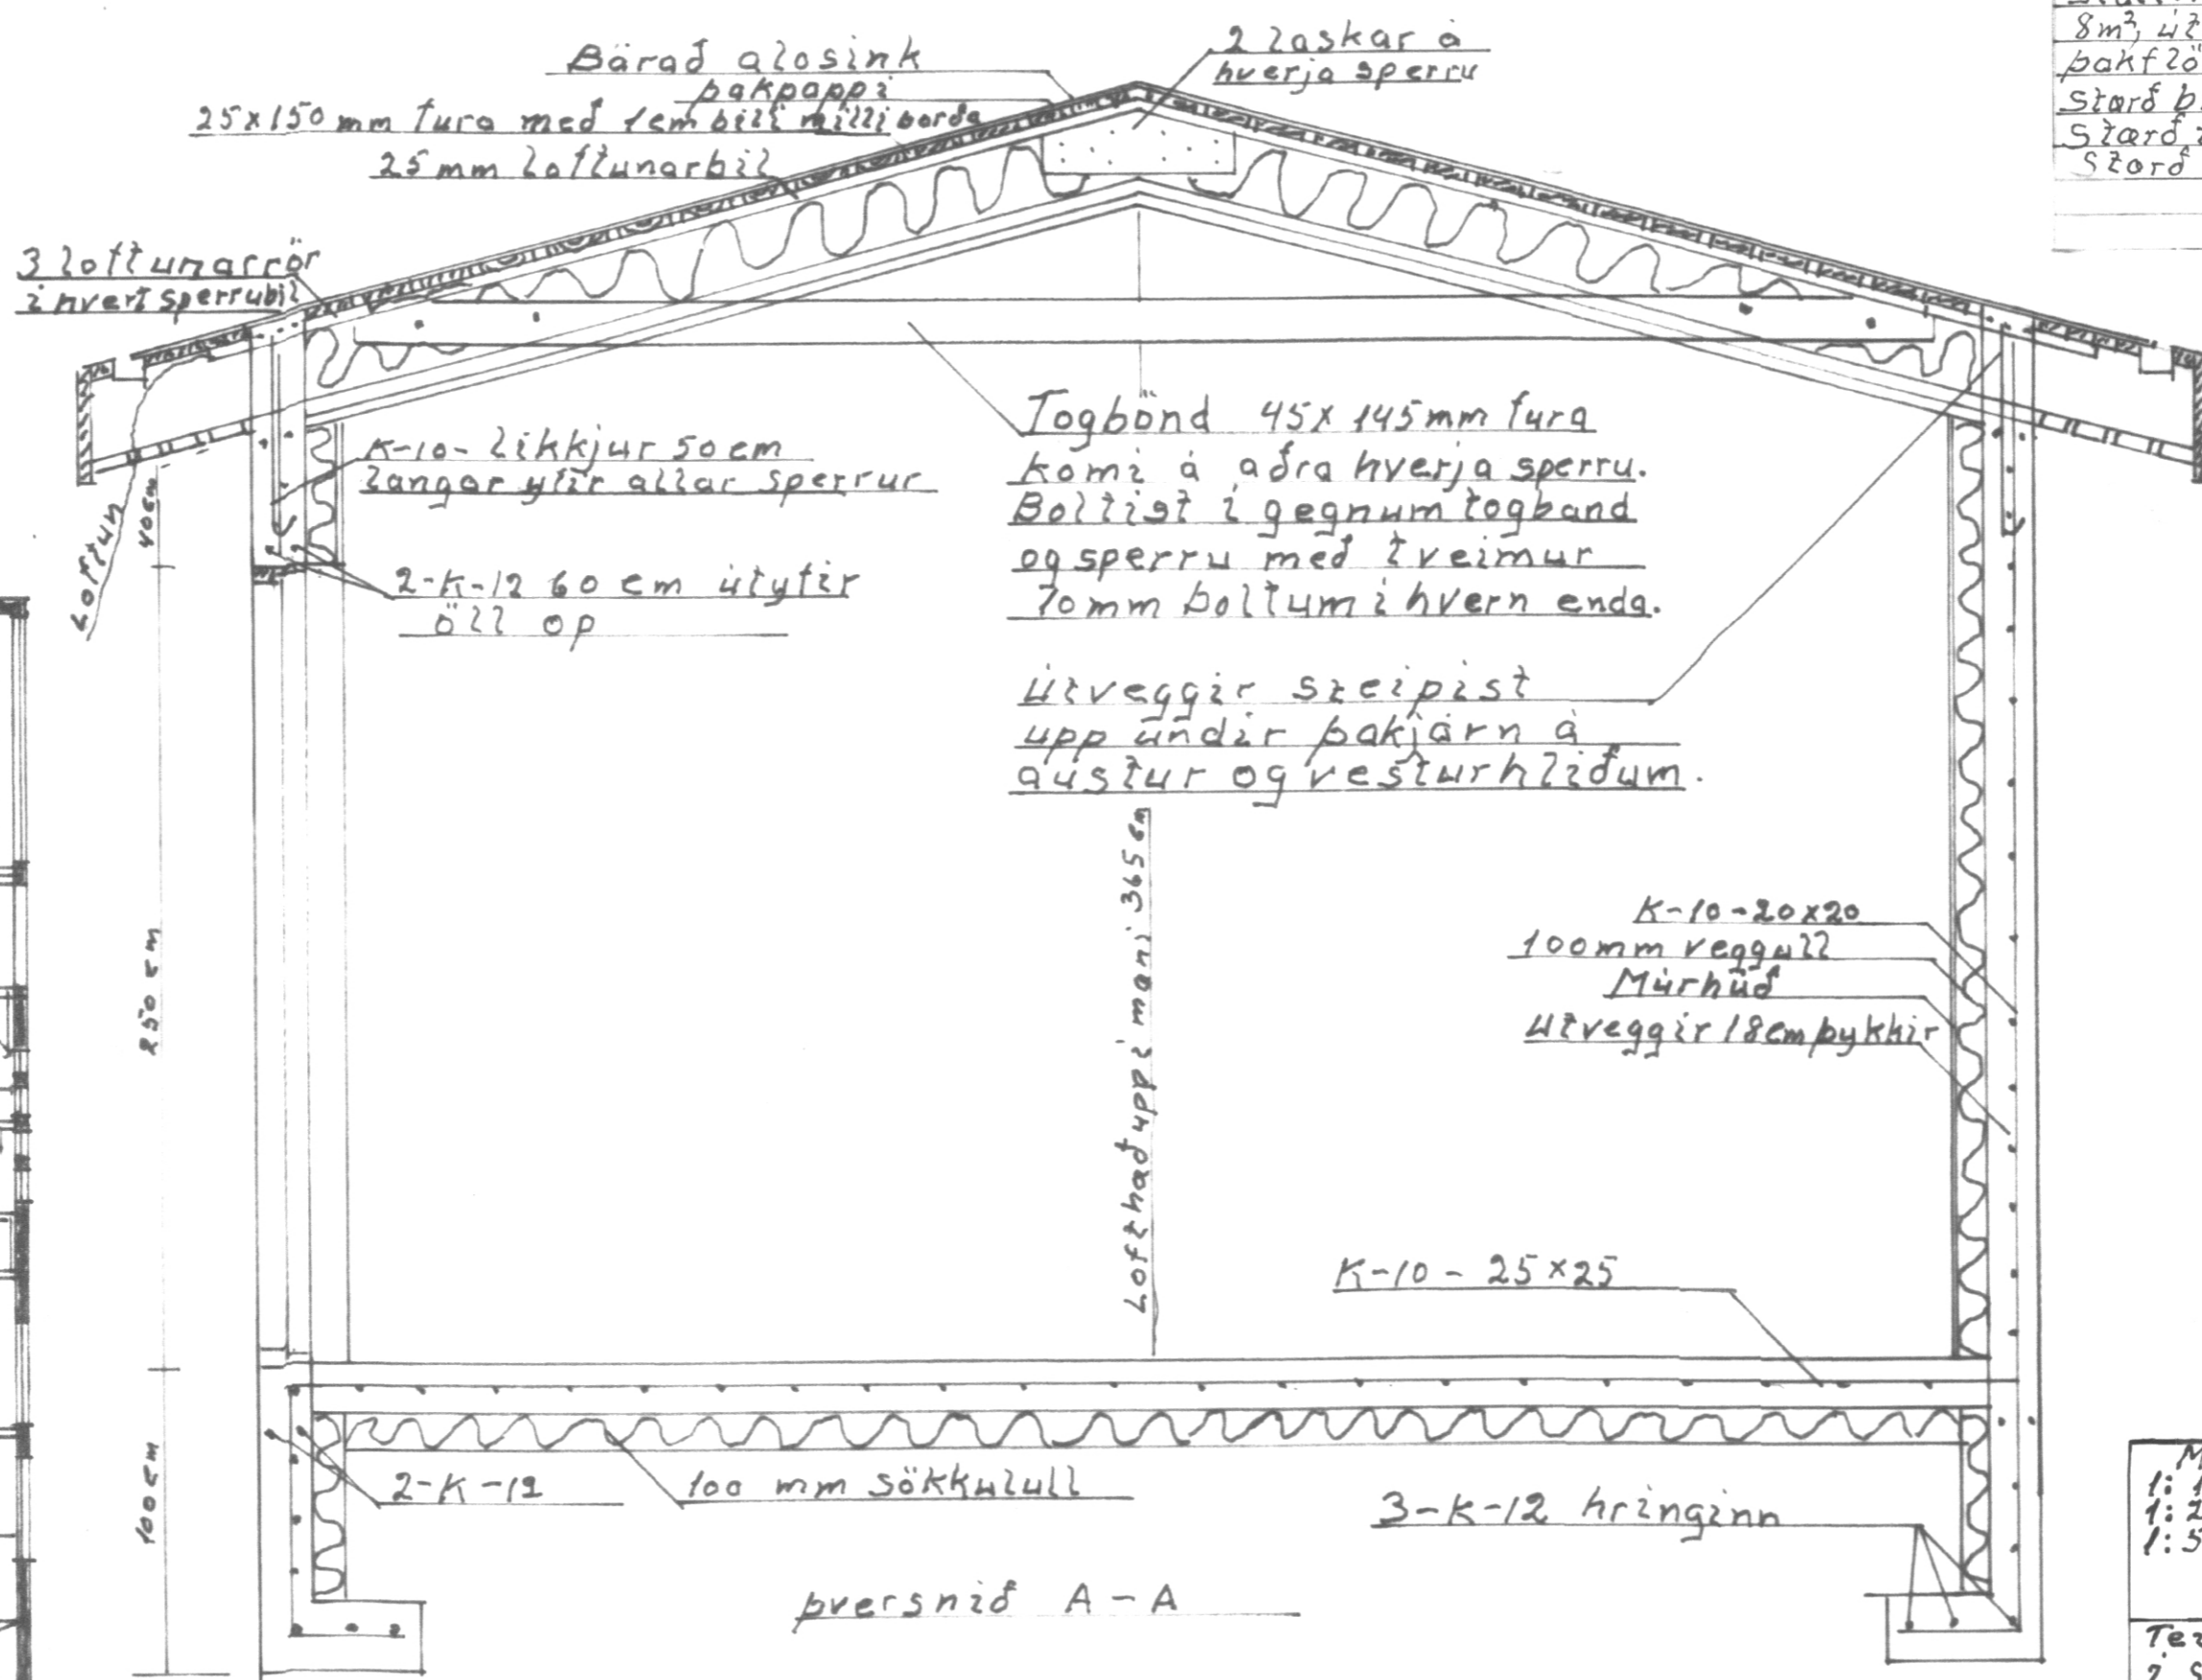 Bárað alosink
þakpappi
25x150 mm fura með 1cm bili milli borða
25 mm loftunarbil
2 laskar á
hverja sperru
8m²,
Stærð
Stærð
Stærð
3 loftunarrör
i hvert sperrubil
K-10- likkjur 50 cm
langar yfir allar sperrur
Loftun
40cm
2-K-12 60 cm útyfir
öll op
Togbönd 45x145mm fura
komi á aðra hverja sperru.
Boltist i gegnum togband
og sperru með tveimur
10mm boltum i hvern enda.
Útveggir steipist
upp undir þakjárn á
austur og vesturhliðum.
250 cm
Lofthæð upp i mæni 365 cm
K-10-20x20
100mm veggull
Múrhúð
Útveggir 18cm þykkir
K-10 - 25x25
100cm
2-K-12
100 mm sökkulull
3-K-12 hringinn
þversnið A-A